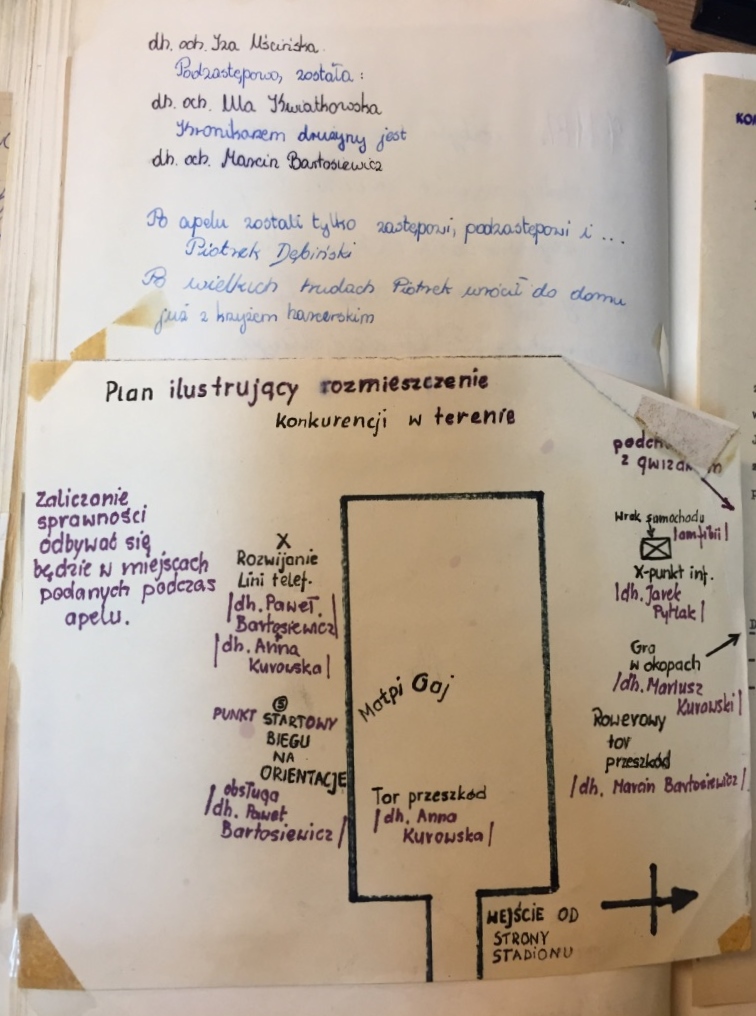 dh. och. Iza Mścińska.
Podzastępową została:
dh. och. Ula Kwiatkowska
Kronikarzem drużyny jest
dh. och. Marcin Bartosiewicz
Po apelu zostali tylko zastępowi, podzastępowi i ...
Piotrek Dębiński
Po wielkich trudach Piotrek wrócił do domu
już z krzyżem harcerskim
Plan ilustrujący rozmieszczenie
konkurencji w terenie
Zaliczanie
sprawności
odbywać się
będzie w miejscach
podanych podczas
apelu.
X
Rozwijanie
Lini telef.
/dh. Paweł
Bartosiewicz/
/dh. Anna
Kurowska/
PUNKT STARTOWY
BIEGU
NA
ORIENTACJE
/obsługa
dh. Paweł
Bartosiewicz/
Małpi Gaj
Tor przeszkód
/dh. Anna
Kurowska/
z gwizdkiem
Wrak samochodu
/amfibii/
X-punkt inf.
/dh. Jarek
Pytlak/
Gra
w okopach
/dh. Mariusz
Kurowski/
Rowerowy
tor
przeszkód
/dh. Marcin Bartosiewicz/
WEJŚCIE OD
STRONY
STADIONU